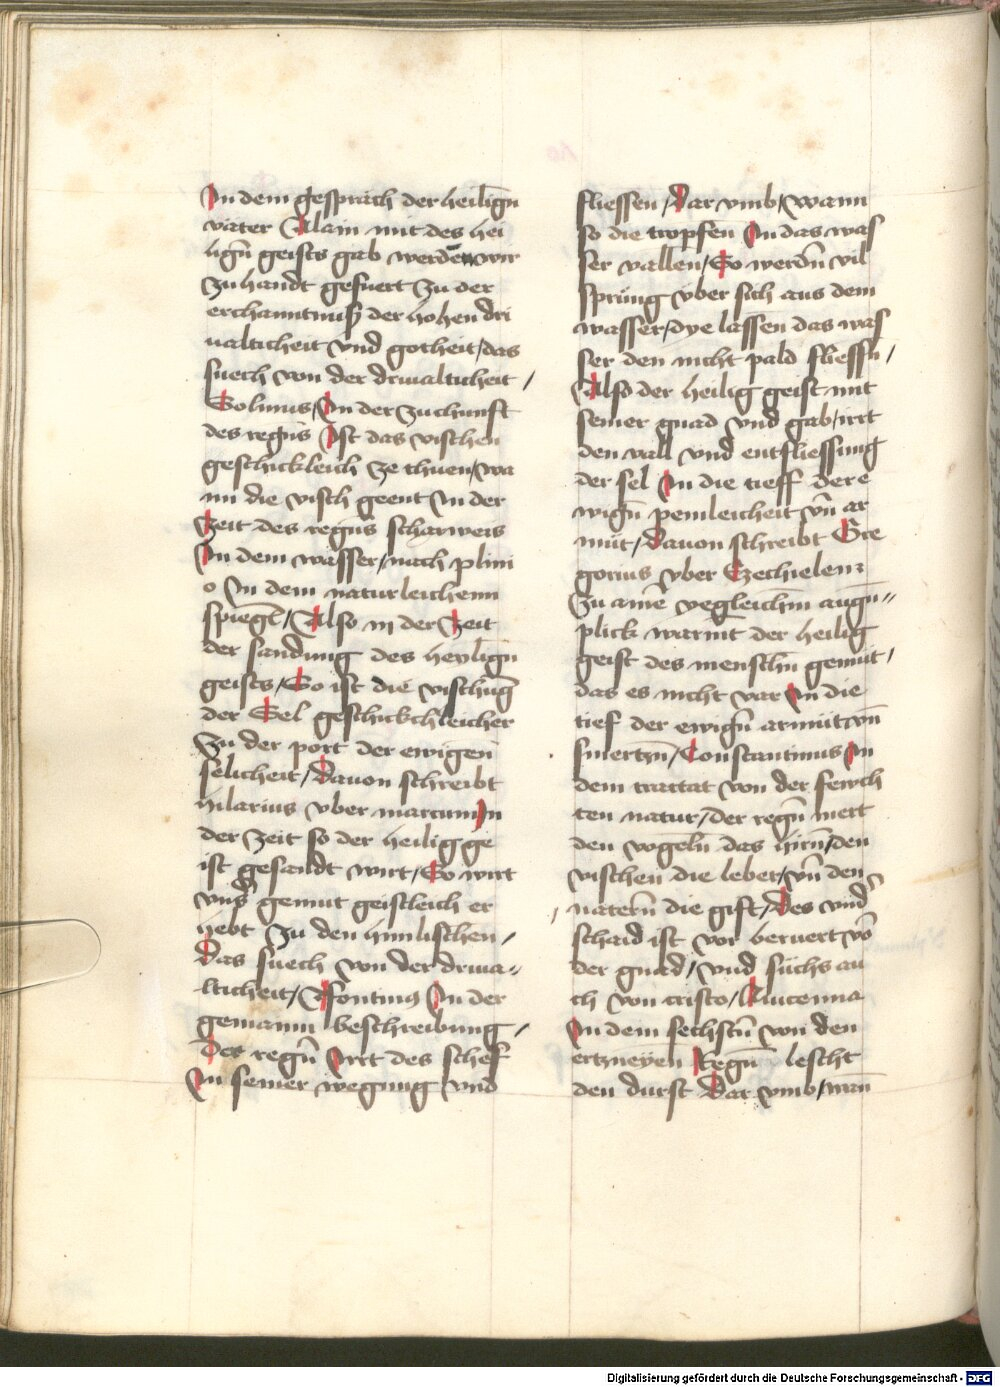 In dem gespräch der heiligñ
väter Allain mit des hei
ligñ geists gab werden wir
zu handt gefuert zu der
erchanntnuß der hohen dri
ualticheit vnd gotheit / das
suech von der driualticheit /
Solinus / In der zuchunft
des regñs Ist das vischen
geschickleich ze thuen / wa
nn die visch geent In der
Zeit des regñs scharweis
In dem wasser / nach plini
o In dem naturleichenn
spiegl / Also in der Zeit
der sandung des heyligñ
geists / So ist die vischūg
der Sel geschickchleicher
zu der port der ewigen
selicheit / Dauon schreibt
hilarius vber marcum In
der Zeit so der heilig ge
ist gesandt wirt / So wirt
vnser gemut geistleich er
hebt zu den himlischen /
Das suech von der driua=
lticheit / Ysontinus In der
gemainn beschreibung /
Der regñ Irrt des schef
In seiner wegung vnd
fliessen / Dar vmb / wann
so die tropfen In das was
ser vallen / So werdñ vil
sprüng vber sich aus dem
wasser / dye lassen das was
ser den nicht pald fliessñ /
Also der heilig geist mit
seiner gnad vnd gab / irrt
den vall vnd entfliessung
der sel In die tieff der e
wigñ pemleicheit vñ ar
müt / Dauon schreibt Gre
gorius vber Ezechielem
zu ainē vegleichm augn=
plick warmt der heilig
geist des menschñ gemüt /
das es nicht var In die
tief der ewigñ armüt vñ
smertzñ / Constantinus In
dem tractat von der fewch
ten natur / der regñ mert
den vogelñ das hirñ / den
vischen die leber / vñ den
naterñ die gift / Des vnd
schaid ist vor beruert võ
der gnad / vnd süchs au
ch von cristo / Auicenna
In dem sechstñ von den
ertzneyen Regñ lescht
den durst Dar vmb / wañ
Digitalisierung gefördert durch die Deutsche Forschungsgemeinschaft - DFG